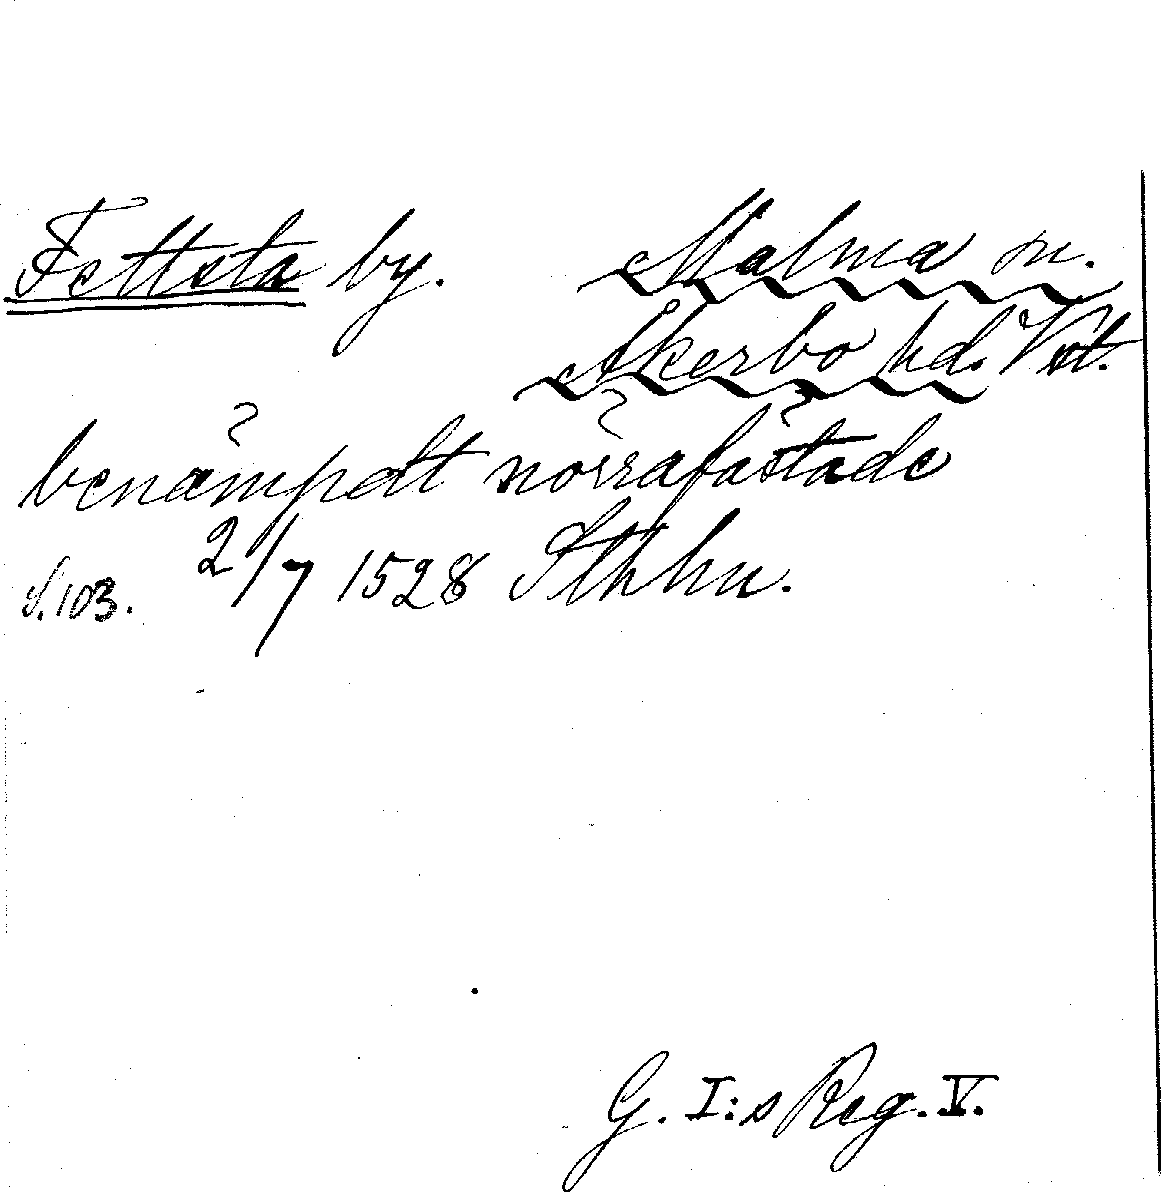 Fettsta by. Malma sn.
Åkerbo hd. Vstl.
benämpdt nörrafästade
S. 103. 2/7 1528 Sthlm.
G. I:s Reg. V.